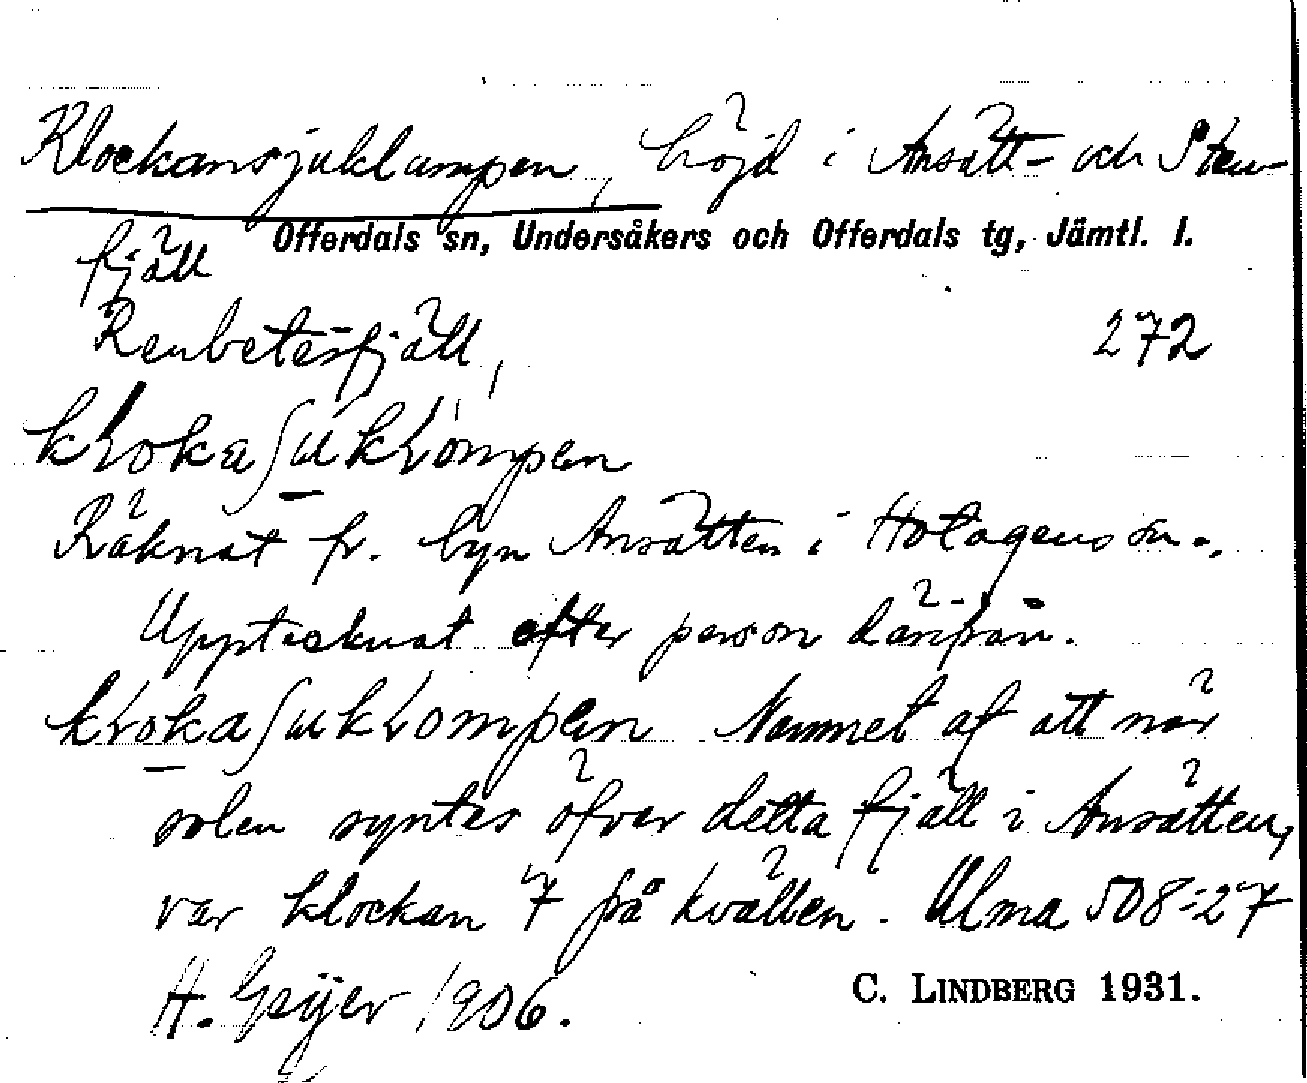 Klockansjuklumpen, höjd i Ansätt- och Sten-
fjäll Offerdals sn, Undersåkers och Offerdals tg, Jämtl. l.
Renbetesfjäll, 272
Räknat fr. byn Ansätten i Hotagens sn.
Upptecknat efter person därifrån.
Namnet af att när
solen syntes öfver detta fjäll i Ansätten,
var klockan 7 på kvällen. Ulma 508:27
H. Geijer 1906. C. LINDBERG 1931.